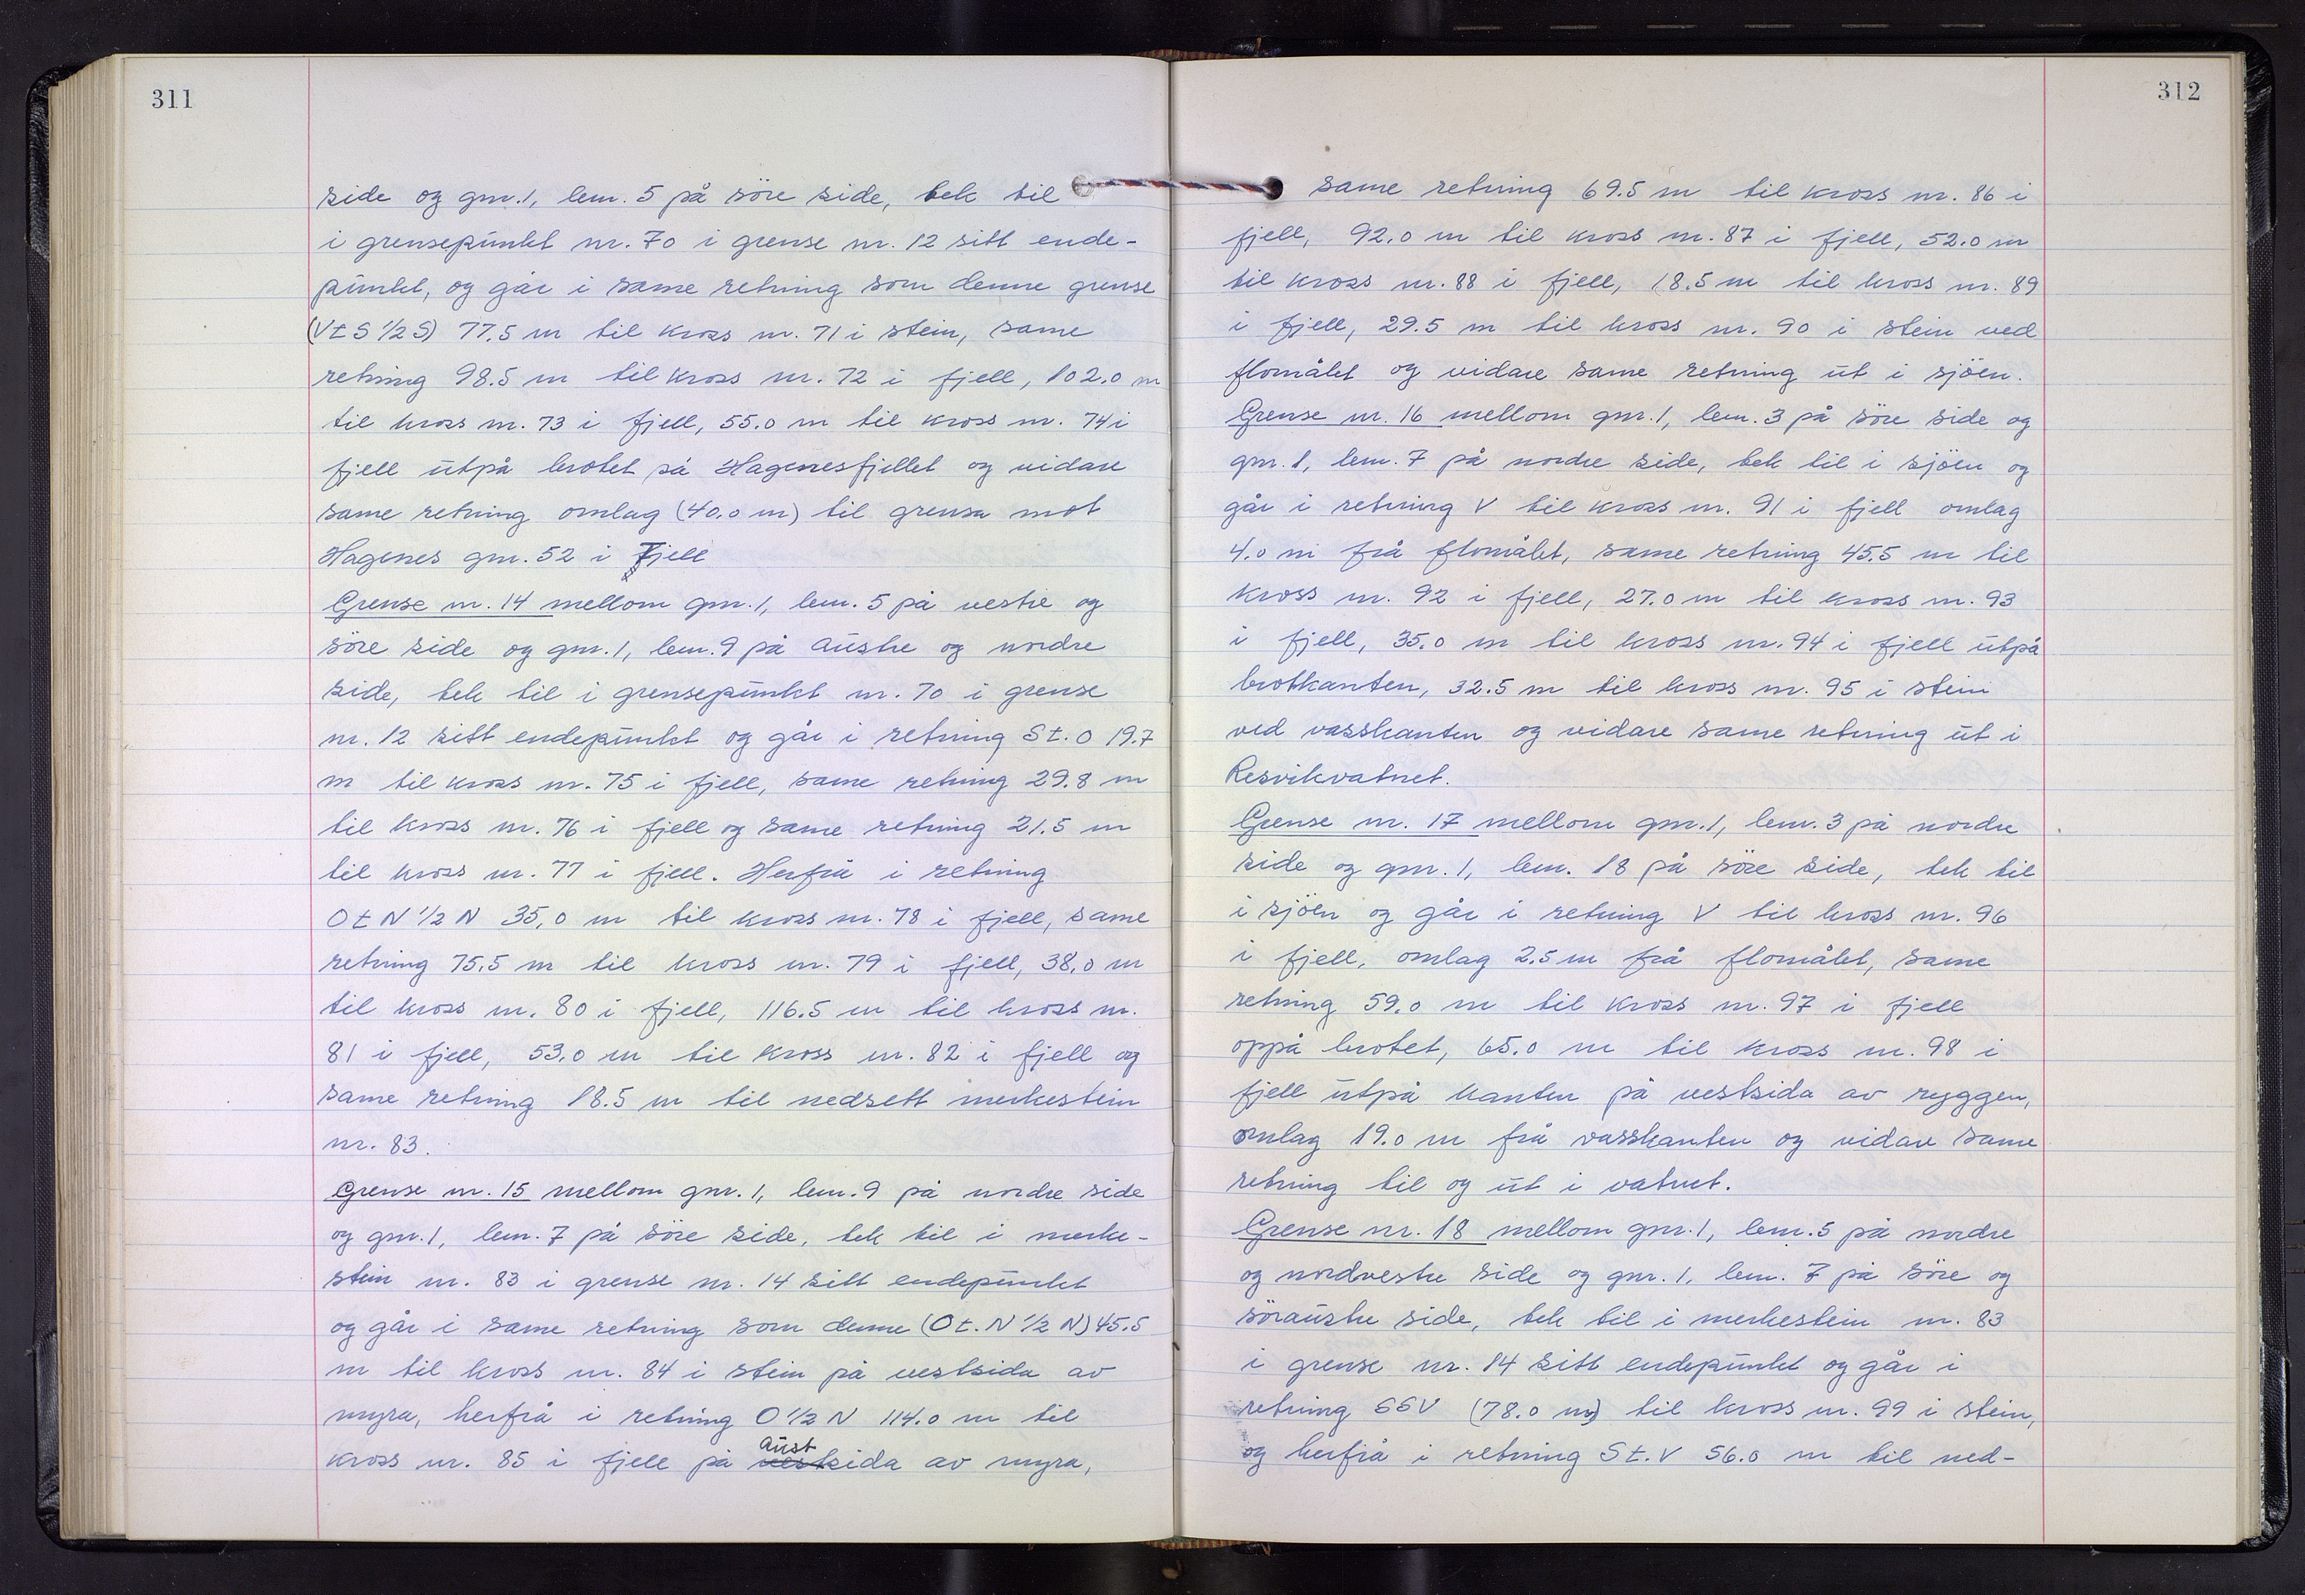 311
side og gnr. 1, lem. 5 på söre side, tek til
i grensepunkt nr. 70 i grense nr. 12 sitt ende-
punkt, og går i same retning som denne grense
(Vt S 1/2 S) 77.5 m til kross nr. 71 i stein, same
retning 98.5 m til kross nr. 72 i fjell, 102.0 m
til kross nr. 73 i fjell, 55.0 m til kross nr. 74 i
fjell utpå brotet på Hagenesfjellet og vidare
same retning omlag (40.0 m) til grensa mot
Hagenes gnr. 52 i Fjell
Grense nr. 14 mellom gnr. 1, lem. 5 på vestre og
söre side og gnr. 1, lem. 9 på austre og nordre
side, tek til i grensepunkt nr. 70 i grense
nr. 12 sitt endepunkt og går i retning St. O 19.7
m til kross nr. 75 i fjell, same retning 29.8 m
til kross nr. 76 i fjell og same retning 21.5 m
til kross nr. 77 i fjell. Herfrå i retning
Ot N 1/2 N 35,0 m til kross nr. 78 i fjell, same
retning 75.5 m til kross nr. 79 i fjell, 38.0 m
til kross nr. 80 i fjell, 116.5 m til kross nr.
81 i fjell, 53.0 m til kross nr. 82 i fjell og
same retning 18.5 m til nedsett merkestein
nr. 83.
Grense nr. 15 mellom gnr. 1, lem. 9 på nordre side
og gnr. 1, lem. 7 på söre side, tek til i merke-
stein nr. 83 i grense nr. 14 sitt endepunkt
og går i same retning som denne (Ot. N 1/2 N) 45.5
m til kross nr. 84 i stein på vestsida av
myra, herfrå i retning O 1/2 N 114.0 m til
aust
kross nr. 85 i fjell på vestsida av myra,
312
same retning 69.5 m til kross nr. 86 i
fjell, 92.0 m til kross nr. 87 i fjell, 52.0 m
til kross nr. 88 i fjell, 18.5 m til kross nr. 89
i fjell, 29.5 m til kross nr. 90 i stein ved
flomålet og vidare same retning ut i sjöen.
Grense nr. 16 mellom gnr. 1, lem. 3 på söre side og
gnr. 1, lem. 7 på nordre side, tek til i sjöen og
går i retning V til kross nr. 91 i fjell omlag
4.0 m frå flomålet, same retning 45.5 m til
kross nr. 92 i fjell, 27.0 m til kross nr. 93
i fjell, 35.0 m til kross nr. 94 i fjell utpå
brotkanten, 32.5 m til kross nr. 95 i stein
ved vasskanten og vidare same retning ut i
Resvikvatnet.
Grense nr. 17 mellom gnr. 1, lem. 3 på nordre
side og gnr. 1, lem. 18 på söre side, tek til
i sjöen og går i retning V til kross nr. 96
i fjell, omlag 2.5 m frå flomålet, same
retning 59.0 m til kross nr. 97 i fjell
oppå brotet, 65.0 m til kross nr. 98 i
fjell utpå kanten på vestsida av ryggen,
omlag 19.0 m frå vasskanten og vidare same
retning til og ut i vatnet.
Grense nr. 18 mellom gnr. 1, lem. 5 på nordre
og nordvestre side og gnr. 1, lem. 7 på söre og
söraustre side, tek til i merkestein nr. 83
i grense nr. 14 sitt endepunkt og går i
retning SSV (78.0 m) til kross nr. 99 i stein,
og herfrå i retning St. V 56.0 m til ned-